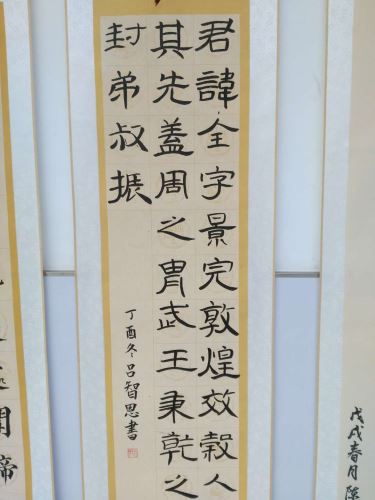 君諱全字景完敦煌效穀人
其先蓋周之胄武王秉乾之
封弟叔振
丁酉冬呂智思書
戊戌春月